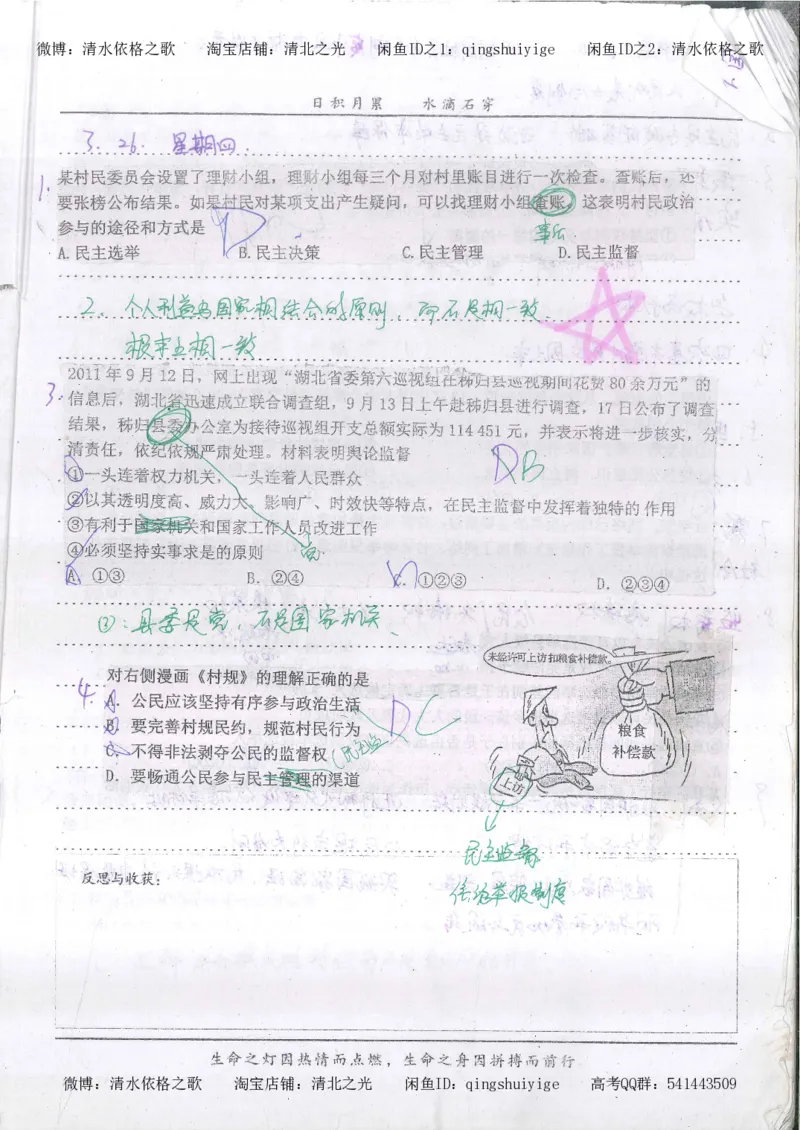 微博：清水依格之歌 淘宝店铺：清北之光 闲鱼ID之1：qingshuiyige 闲鱼ID之2：清水依格之歌
日积月累 水滴石穿
3.26. 星期四.
1. 某村民委员会设置了理财小组，理财小组每三个月对村里账目进行一次检查。查账后，还
要张榜公布结果。如果村民对某项支出产生疑问，可以找理财小组查账。这表明村民政治
参与的途径和方式是 D
事后
A.民主选举 B.民主决策 C.民主管理 D.民主监督
2. 个人利益与国家相结合的原则，而不是相一致.
根本上相一致
2011年9月12日，网上出现“湖北省委第六巡视组在秭归县巡视期间花费80余万元”的
3. 信息后，湖北省迅速成立联合调查组，9月13日上午赴秭归县进行调查，17日公布了调查
结果，秭归县委办公室为接待巡视组开支总额实际为114 451元，并表示将进一步核实，分
清责任，依纪依规严肃处理。材料表明舆论监督 DB
①一头连着权力机关，一头连着人民群众
②以其透明度高、威力大、影响广、时效快等特点，在民主监督中发挥着独特的作用
③有利于国家机关和国家工作人员改进工作
④必须坚持实事求是的原则 党
A. ①③ B. ②④ C. ①②③ D. ②③④
③：县委是党，不是国家机关.
未经许可上访扣粮食补偿款。
对右侧漫画《村规》的理解正确的是
4. A. 公民应该坚持有序参与政治生活
B. 要完善村规民约，规范村民行为 D C
C. 不得非法剥夺公民的监督权
D. 要畅通公民参与民主管理的渠道
粮食
补偿款
上访
民主监督
信访举报制度
反思与收获：
生命之灯因热情而点燃，生命之舟因拼搏而前行
微博：清水依格之歌 淘宝店铺：清北之光 闲鱼ID：qingshuiyige 高考QQ群：541443509